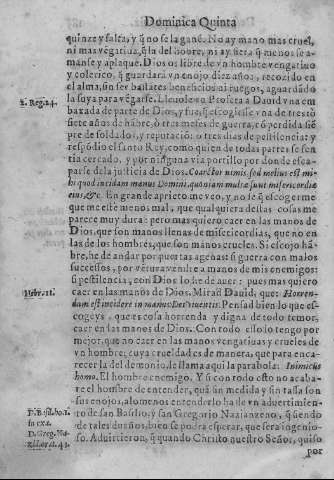 Dominica Quinta
quinze y falta, y q̃ no se la gané. No ay mano mas cruel,
ni mas vẽgatiua, q̃ la del hõbre, ni ay fiera q̃ menos se a-
manse y aplaque. Dios os libre de vn hombre vengatiuo
y colerico, q̃ guardarà vn enojo diez años, recozido en
el alma, sin ser bastãtes beneficios ni ruegos, aguardãdo
2. Reg. 24.
la suya para vẽgarse. Lleuole vn Profeta a Dauid vna em
baxada de parte de Dios, y fue, q̃ escogiesse vna de tres: o
siete años de hãbre, o tres meses de guerra, cõ perdida siẽ
pre de soldados, y reputaciõ: o tres dias de pestilencia: y
respõdio el santo Rey, como quien de todas partes se sen
tia cercado, y por ninguna via portillo por donde esca-
parse de la justicia de Dios. Coarctor nimis, sed melius est mi-
hi quod incidam manus Domini, quoniam multæ sunt misericordiæ
eius, &c. En grande aprieto me veo, y no sè q̃ escogerme
que me estè menos mal, que qualquiera destas cosas me
parece muy dura: pero mas quiero caer en las manos de
Dios, que son manos llenas de misericordias, que no en
las de los hombres, que son manos crueles. Si escojo hã-
bre, he de andar por puertas agenas: si guerra con malos
successos, por vẽtura vendre a manos de mis enemigos:
si pestilencia, con Dios lo he de auer: pues mas quiero
caer en las manos de Dios. Mirad Dauid, que: Horren-
Hebr. 11.
dum est incidere in manus Dei viuentis. Pensad bien lo que es-
cogeys, que es cosa horrenda y digna de todo temor,
caer en las manos de Dios. Con todo esso lo tengo por
mejor, que no caer en las manos vengatiuas y crueles de
vn hombre, cuya crueldad es de manera, que para enca-
recer la del demonio, le llama aqui la parabola: Inimicus
homo. El hombre enemigo. Y si con todo esto no acaba-
re el hombre de entender, quã sin medida y sin tassa son
sus enojos, alomenos entenderlo ha de vn aduertimien-
D. Basil. ho. 1.
to de san Basilio, y san Gregorio Nazianzeno, q̃ siendo
D. Greg. Na-
de tales dueños, bien se podra esperar, que sera ingenio-
so. Aduirtieron, q̃ quando Christo nuestro Señor, quiso
por